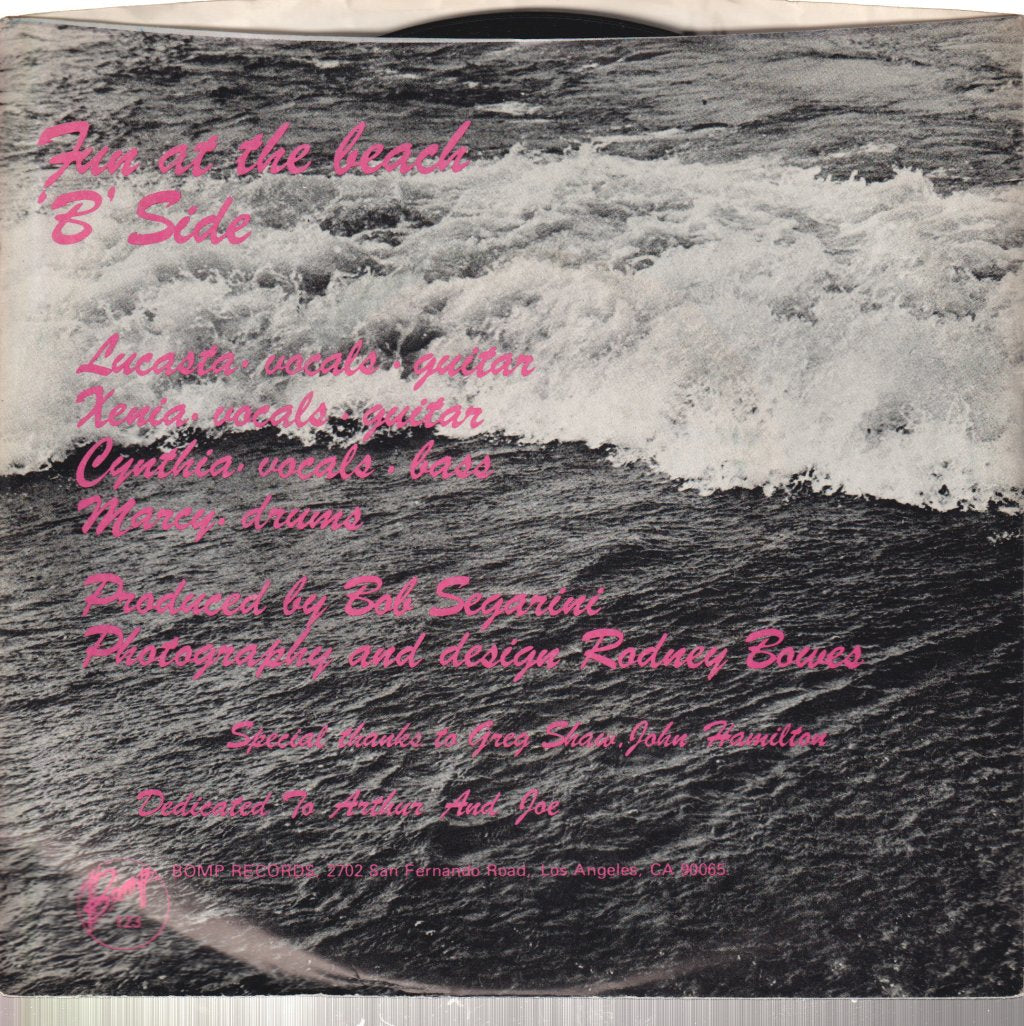 Fun at the beach
'B' Side
Lucasta. vocals . guitar
Xenia. vocals . guitar
Cynthia. vocals . bass
Marcy. drums
Produced by Bob Segarini
Photography and design Rodney Bowes
Special thanks to Greg Shaw, John Hamilton
Dedicated To Arthur And Joe
BOMP RECORDS, 2702 San Fernando Road, Los Angeles, CA 90065.
Bomp
123